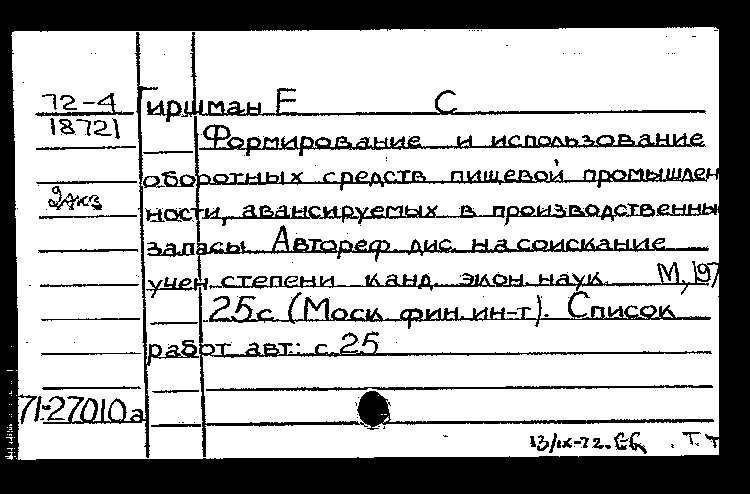 72-4 Гиршман Е С
18721 Формирование и использование
оборотных средств пищевой промышлен
2 экз ности, авансируемых в производственны
запасы. Автореф. дис. на соискание
учен. степени канд. экон. наук М., 197
25с (Моск. фин. ин-т). Список
работ авт.: с. 25
71-27010а
13/IX-72. . Т. Т